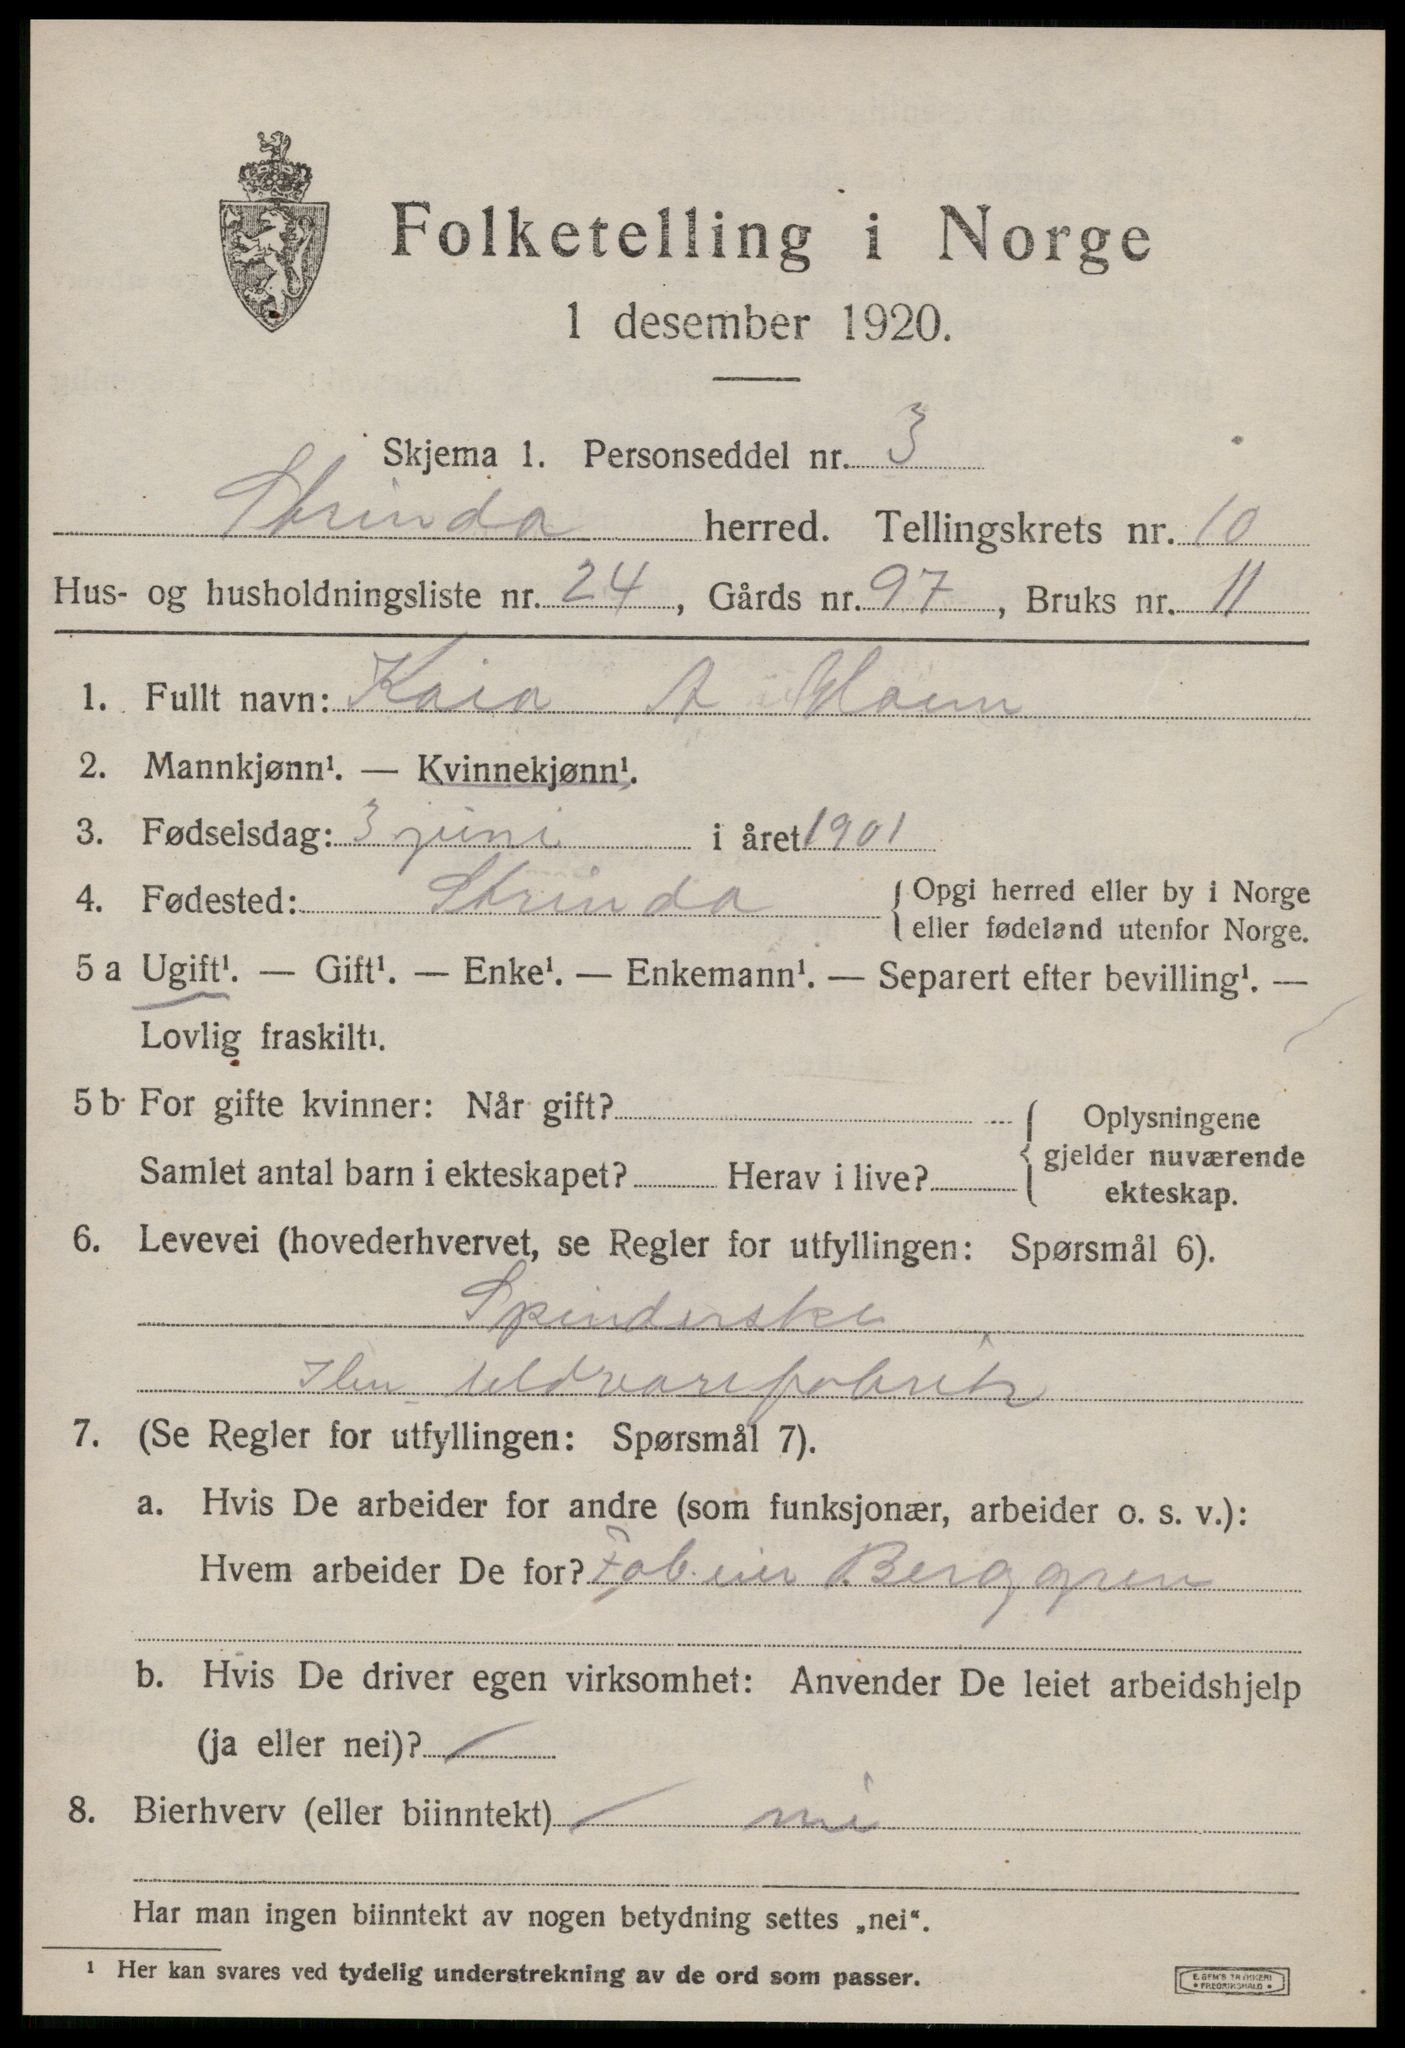 Folketelling i Norge
1 desember 1920.
Skjema 1. Personseddel nr. 3
Strinda herred. Tellingskrets nr. 10
Hus- og husholdningsliste nr. 24, Gårds nr. 97, Bruks nr. 11
1. Fullt navn: Kaia A Moum
2. Mannkjønn¹. — Kvinnekjønn¹.
3. Fødselsdag: 3 juni i året 1901
4. Fødested: Strinda { Opgi herred eller by i Norge
eller fødeland utenfor Norge.
5 a Ugift¹. — Gift¹. — Enke¹. — Enkemann¹. — Separert efter bevilling¹. —
Lovlig fraskilt¹.
5 b For gifte kvinner: Når gift? { Oplysningene
gjelder nuværende
ekteskap.
Samlet antal barn i ekteskapet? Herav i live?
6. Levevei (hovederhvervet, se Regler for utfyllingen: Spørsmål 6).
Spinderske
Ilen Uldvarefabrik
7. (Se Regler for utfyllingen: Spørsmål 7).
a. Hvis De arbeider for andre (som funksjonær, arbeider o. s. v.):
Hvem arbeider De for? Fab.eier Berggren
b. Hvis De driver egen virksomhet: Anvender De leiet arbeidshjelp
(ja eller nei)? /
8. Bierhverv (eller biinntekt) / nei
Har man ingen biinntekt av nogen betydning settes „nei“.
¹ Her kan svares ved tydelig understrekning av de ord som passer.
E. SEM'S TRYKKERI
• FREDRIKSHALD •